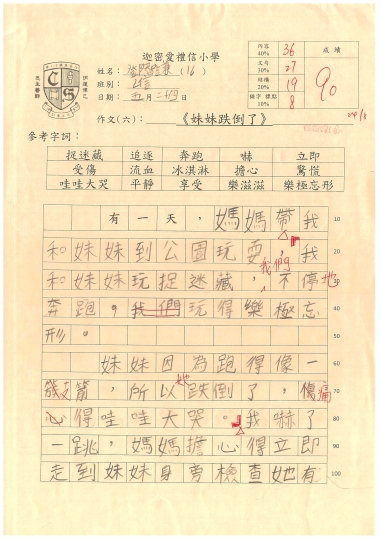 迦密愛禮信小學
姓名： (16)
班別：
日期：五月二十四日
作文(六)： 《妹妹跌倒了》
內容 40% 36
字句 30% 27
結構 20% 19
錯字 標點 10% 8
成績
90
參考字詞：
捉迷藏 追逐 奔跑 嚇 立即
受傷 流血 冰淇淋 擔心 驚慌
哇哇大哭 平靜 享受 樂滋滋 樂極忘形
有一天，媽媽帶我 10
和妹妹到公園玩耍，我
我們
和妹妹玩捉迷藏，不停地 30
奔跑。我們玩得樂極忘 40
形。
妹妹因為跑得像一 60
她
發支箭，所以跌倒了，傷痛 70
心得哇哇大哭。我嚇了 80
一跳，媽媽擔心得立即 90
走到妹妹身旁檢查她有 100